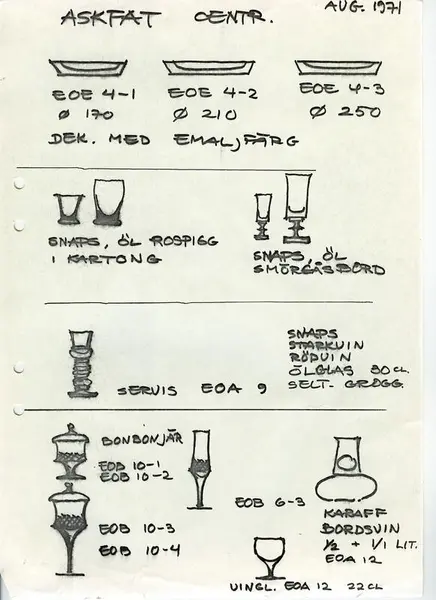 ASKFAT CENTR. AUG. 1971
EOE 4-1 EOE 4-2 EOE 4-3
Ø 170 Ø 210 Ø 250
DEK. MED EMALJFÄRG
SNAPS, ÖL ROSPIGG
I KARTONG
SNAPS, ÖL
SMÖRGÅSBORD
SERVIS EOA 9
SNAPS
STARKVIN
RÖDVIN
ÖLGLAS 30 CL.
SELT. GROGG.
BONBONJÄR
EOB 10-1
EOB 10-2
EOB 10-3
EOB 10-4
EOB 6-3
KARAFF
BORDSVIN
1/2 + 1/1 LIT.
EOA 12
VINGL. EOA 12 22 CL